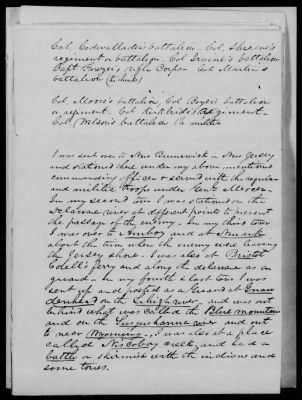 Col. Cadwallader's battalion - Col. Shreine's
regiment or battalion - Col. Irvine's battalion
Capt. rifle Corps - Col. Martin's
battalion (I think)
Col. Moore's battalion, Col. Boyer's battalion
or regiment. Col. Kirkbride's Regiment -
Col. Wilson's battalion
I was sent over to New Brunswick in New Jersey
and stationed there under my above mentioned
commanding officer & served with the regular
and militia troops under Genl. Mercer.
In my second tour I was stationed on the
Delaware river at different points to prevent
the passage of the enemy. In my third tour
I was over to Amboy and at Newark
about the time when the enemy were leaving
the Jersey shore. I was also at Bristol
Ferry and along the delaware as a
guard. In my fourth & last tour I was
sent up and posted as a Guard at
on the Lehigh river - and was out
behind what was called the Blue mountain
and on the Susquehanna river and out
to near Wyoming, I was also at a place
called Nescobeg creek, and had a
battle or skirmish with the indians and
some tories.